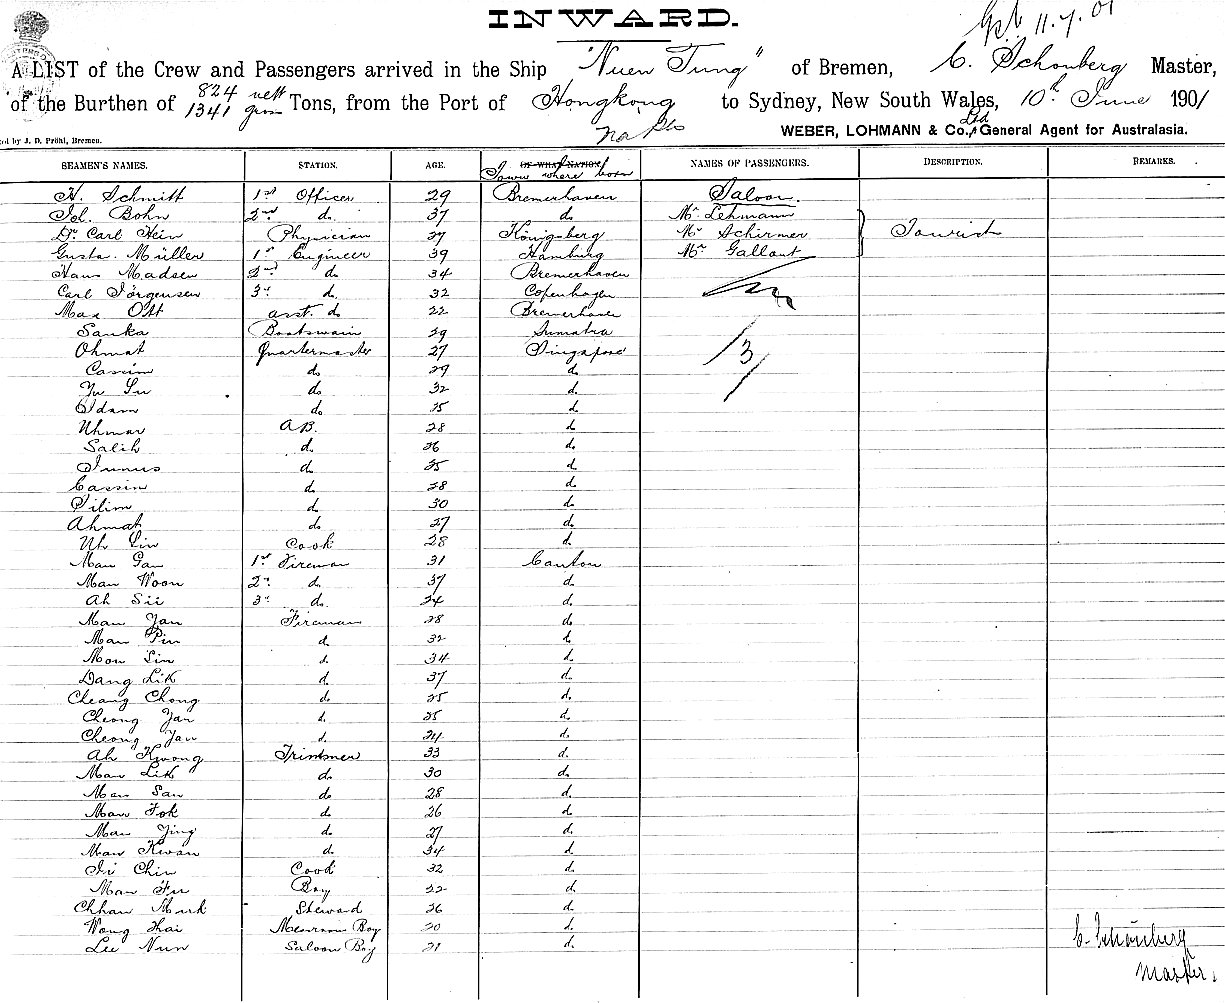 INWARD.
11.7.01
A LIST of the Crew and Passengers arrived in the Ship "Nuen Tung" of Bremen, C. Schönberg Master,
of the Burthen of 824 nett 1341 gross Tons, from the Port of Hongkong to Sydney, New South Wales, 10th June 1901
WEBER, LOHMANN & Co., Ltd General Agent for Australasia.
ed by J. D. Pröhl, Bremen.
SEAMEN'S NAMES. STATION. AGE. OF WHAT NATION. Town where born NAMES OF PASSENGERS. DESCRIPTION. REMARKS.
H. Schmitt 1st Officer 29 Bremerhaven Saloon.
Bohn 2nd do. 37 do Mr Lehmann
Dr. Carl Hein Physician 27 Königsberg Mr Schirmer Tourist
Gustav Müller 1st Engineer 39 Hamburg Mr Gallant
Hans Madsen 2nd do. 34 Bremerhaven
Carl Jörgensen 3rd do. 32 Copenhagen
Max Ott asst. do 22 Bremerhaven
Sanka Boatswain 29 Sumatra
Ohmat Quartermaster 27 Singapore
Cassim do. 29 do.
Yu Su do. 32 do.
Odam do. 25 do.
Uhmar A.B. 28 do.
Salih do. 26 do.
Junus do. 25 do.
Cassim do. 28 do.
Silim do. 30 do.
Ahmat do. 27 do.
Uh Lin Cook 28 do.
Man Gan 1st Fireman 31 Canton
Man Woon 2nd do. 37 do.
Ah Sii 3rd do. 24 do.
Man Yan Fireman 28 do.
Man Pin do. 32 do.
Mon Sin do. 34 do.
Dang Lik do. 37 do.
Cheang Chong do. 25 do.
Cheong Yan do. 25 do.
Cheong Yau do. 24 do.
Ah Kwong Trimmer 33 do.
Man Lik do. 30 do.
Man San do. 28 do.
Man Fok do. 26 do.
Man Ying do. 27 do.
Man Kwan do. 34 do.
Chin Cook 32 do.
Man Fu Boy 22 do.
Chhan Muk Steward 26 do.
Wong Hai Messroom Boy 20 do.
Lee Nun Saloon Boy 21 do.
3
C. Schönberg
Master.